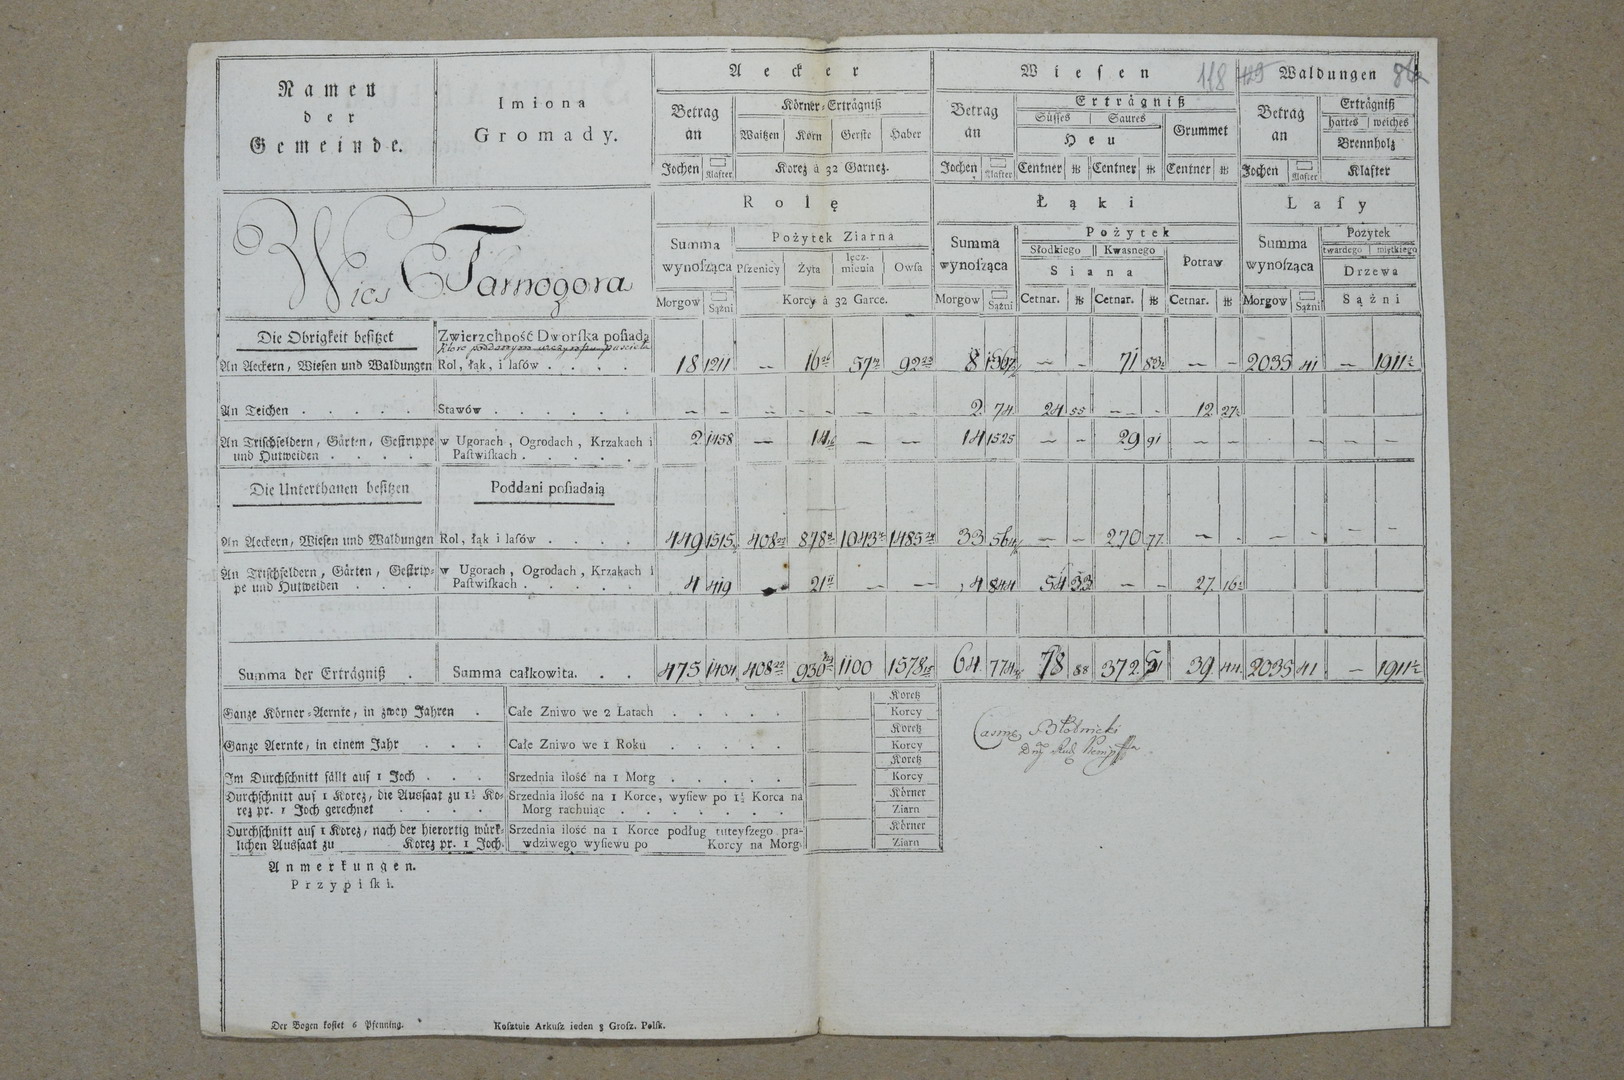 Namen
der
Gemeinde.
Imiona
Gromady.
Aecker
Betrag
an
Jochen | Klafter
Körner-Erträgniß
Waitzen | Korn | Gerste | Haber
Korez à 32 Garnez.
Wiesen
Betrag
an
Jochen | Klafter
Erträgniß
Süsses | Saures
Heu
Grummet
Centner | ℔ | Centner | ℔ | Centner | ℔
118
Waldungen
Betrag
an
Jochen | Klafter
Erträgniß
hartes | weiches
Brennholz
Klafter
Wies Tarnogora
Rolę
Summa
wynosząca
Morgow | Sążni
Pożytek Ziarna
Pszenicy | Żyta | ięcz-
mienia | Owsa
Korcy à 32 Garce.
Łąki
Summa
wynosząca
Morgow | Sążni
Pożytek
Słodkiego | Kwasnego
Siana
Potraw
Cetnar. | ℔ | Cetnar. | ℔ | Cetnar. | ℔
Lasy
Summa
wynosząca
Morgow | Sążni
Pożytek
twardego | miętkiego
Drzewa
Sążni
Die Obrigkeit besitzet | Zwierzchność Dworska posiada
An Aeckern, Wiesen und Waldungen | Rol, łąk, i lasów . . . . | 18 | 1211 | — | 16 | 57 | 92 | 8 | — | - | 71 | — | - | 2035 | 41 | — | 1911
An Teichen . . . . . | Stawów . . . . . . | – | – | – | – | – | – | 2 | 74 | 24 | 55 | – | - | 12 | 27
An Trischfeldern, Gärten, Gestrippe | w Ugorach, Ogrodach, Krzakach i | 2 | 1458 | — | 14 | — | — | 14 | 1525 | – | – | 29 | 91 | – | – | – | – | – | –
und Hutweiden . . . . | Pastwiskach . . . . .
Die Unterthanen besitzen | Poddani posiadaią
An Aeckern, Wiesen und Waldungen | Rol, łąk i lasów . . . . | 449 | 1515 | 408 | 878 | 1043 | 1485 | 33 | 564 | — | – | 270 | 77 | – | - | – | - | – | –
An Trischfeldern, Gärten, Gestrip- | w Ugorach, Ogrodach, Krzakach i | 4 | 419 | 21 | — | — | 4 | 844 | 54 | 33 | – | – | 27 | 16
pe und Hutweiden . . . | Pastwiskach . . . . .
Summa der Erträgniß . | Summa całkowita. . . | 475 | 1404 | 408 | 930 | 1100 | 1578 | 64 | 774 | 78 | 88 | 372 | 39 | 44 | 2035 | 41 | — | 1911
Ganze Körner-Aernte, in zwey Jahren . | Całe Zniwo we 2 Latach . . . . . | Koretz
Korcy
Ganze Aernte, in einem Jahr . . . | Całe Zniwo we 1 Roku . . . . . | Koretz
Korcy
Im Durchschnitt fällt auf 1 Joch . . . | Srzednia ilość na 1 Morg . . . . . | Koretz
Korcy
Durchschnitt auf 1 Korez, die Aussaat zu 1½ Ko- | Srzednia ilość na 1 Korce, wysiew po 1½ Korca na | Körner
rez pr. 1 Joch gerechnet . . . | Morg rachuiąc . . . . . . . | Ziarn
Durchschnitt auf 1 Korez, nach der hierortig würk- | Srzednia ilość na 1 Korce podług tuteyszego pra- | Körner
lichen Aussaat zu Korez pr. 1 Joch. | wdziwego wysiewu po Korcy na Morg | Ziarn
Anmerkungen.
Przypiski.
Der Bogen kostet 6 Pfenning.
Kosztuie Arkusz ieden 3 Grosz. Polsk.